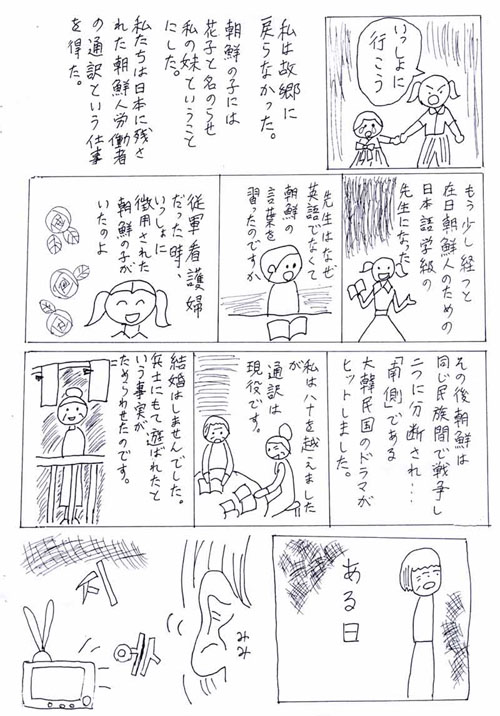 いっしょに
行こう
私は故郷に
戻らなかった。
朝鮮の子には
花子と名のらせ
私の妹ということ
にした。
私たちは日本に残さ
れた朝鮮人労働者
の通訳という仕事
を得た。
もう少し経つと
在日朝鮮人のための
日本語学級の
先生になった
先生はなぜ
英語でなくて
朝鮮の
言葉を
習ったのですか
従軍看護婦
だった時、
いっしょに
徴用された
朝鮮の子が
いたのよ
その後朝鮮は
同じ民族間で戦争し
二つに分断され…
「南側」である
大韓民国のドラマが
ヒットしました。
私は八十を越えました
が
通訳は
現役です。
結婚はしませんでした。
兵士にもて遊ばれたと
いう事実が
ためらわせたのです。
ある日
みみ